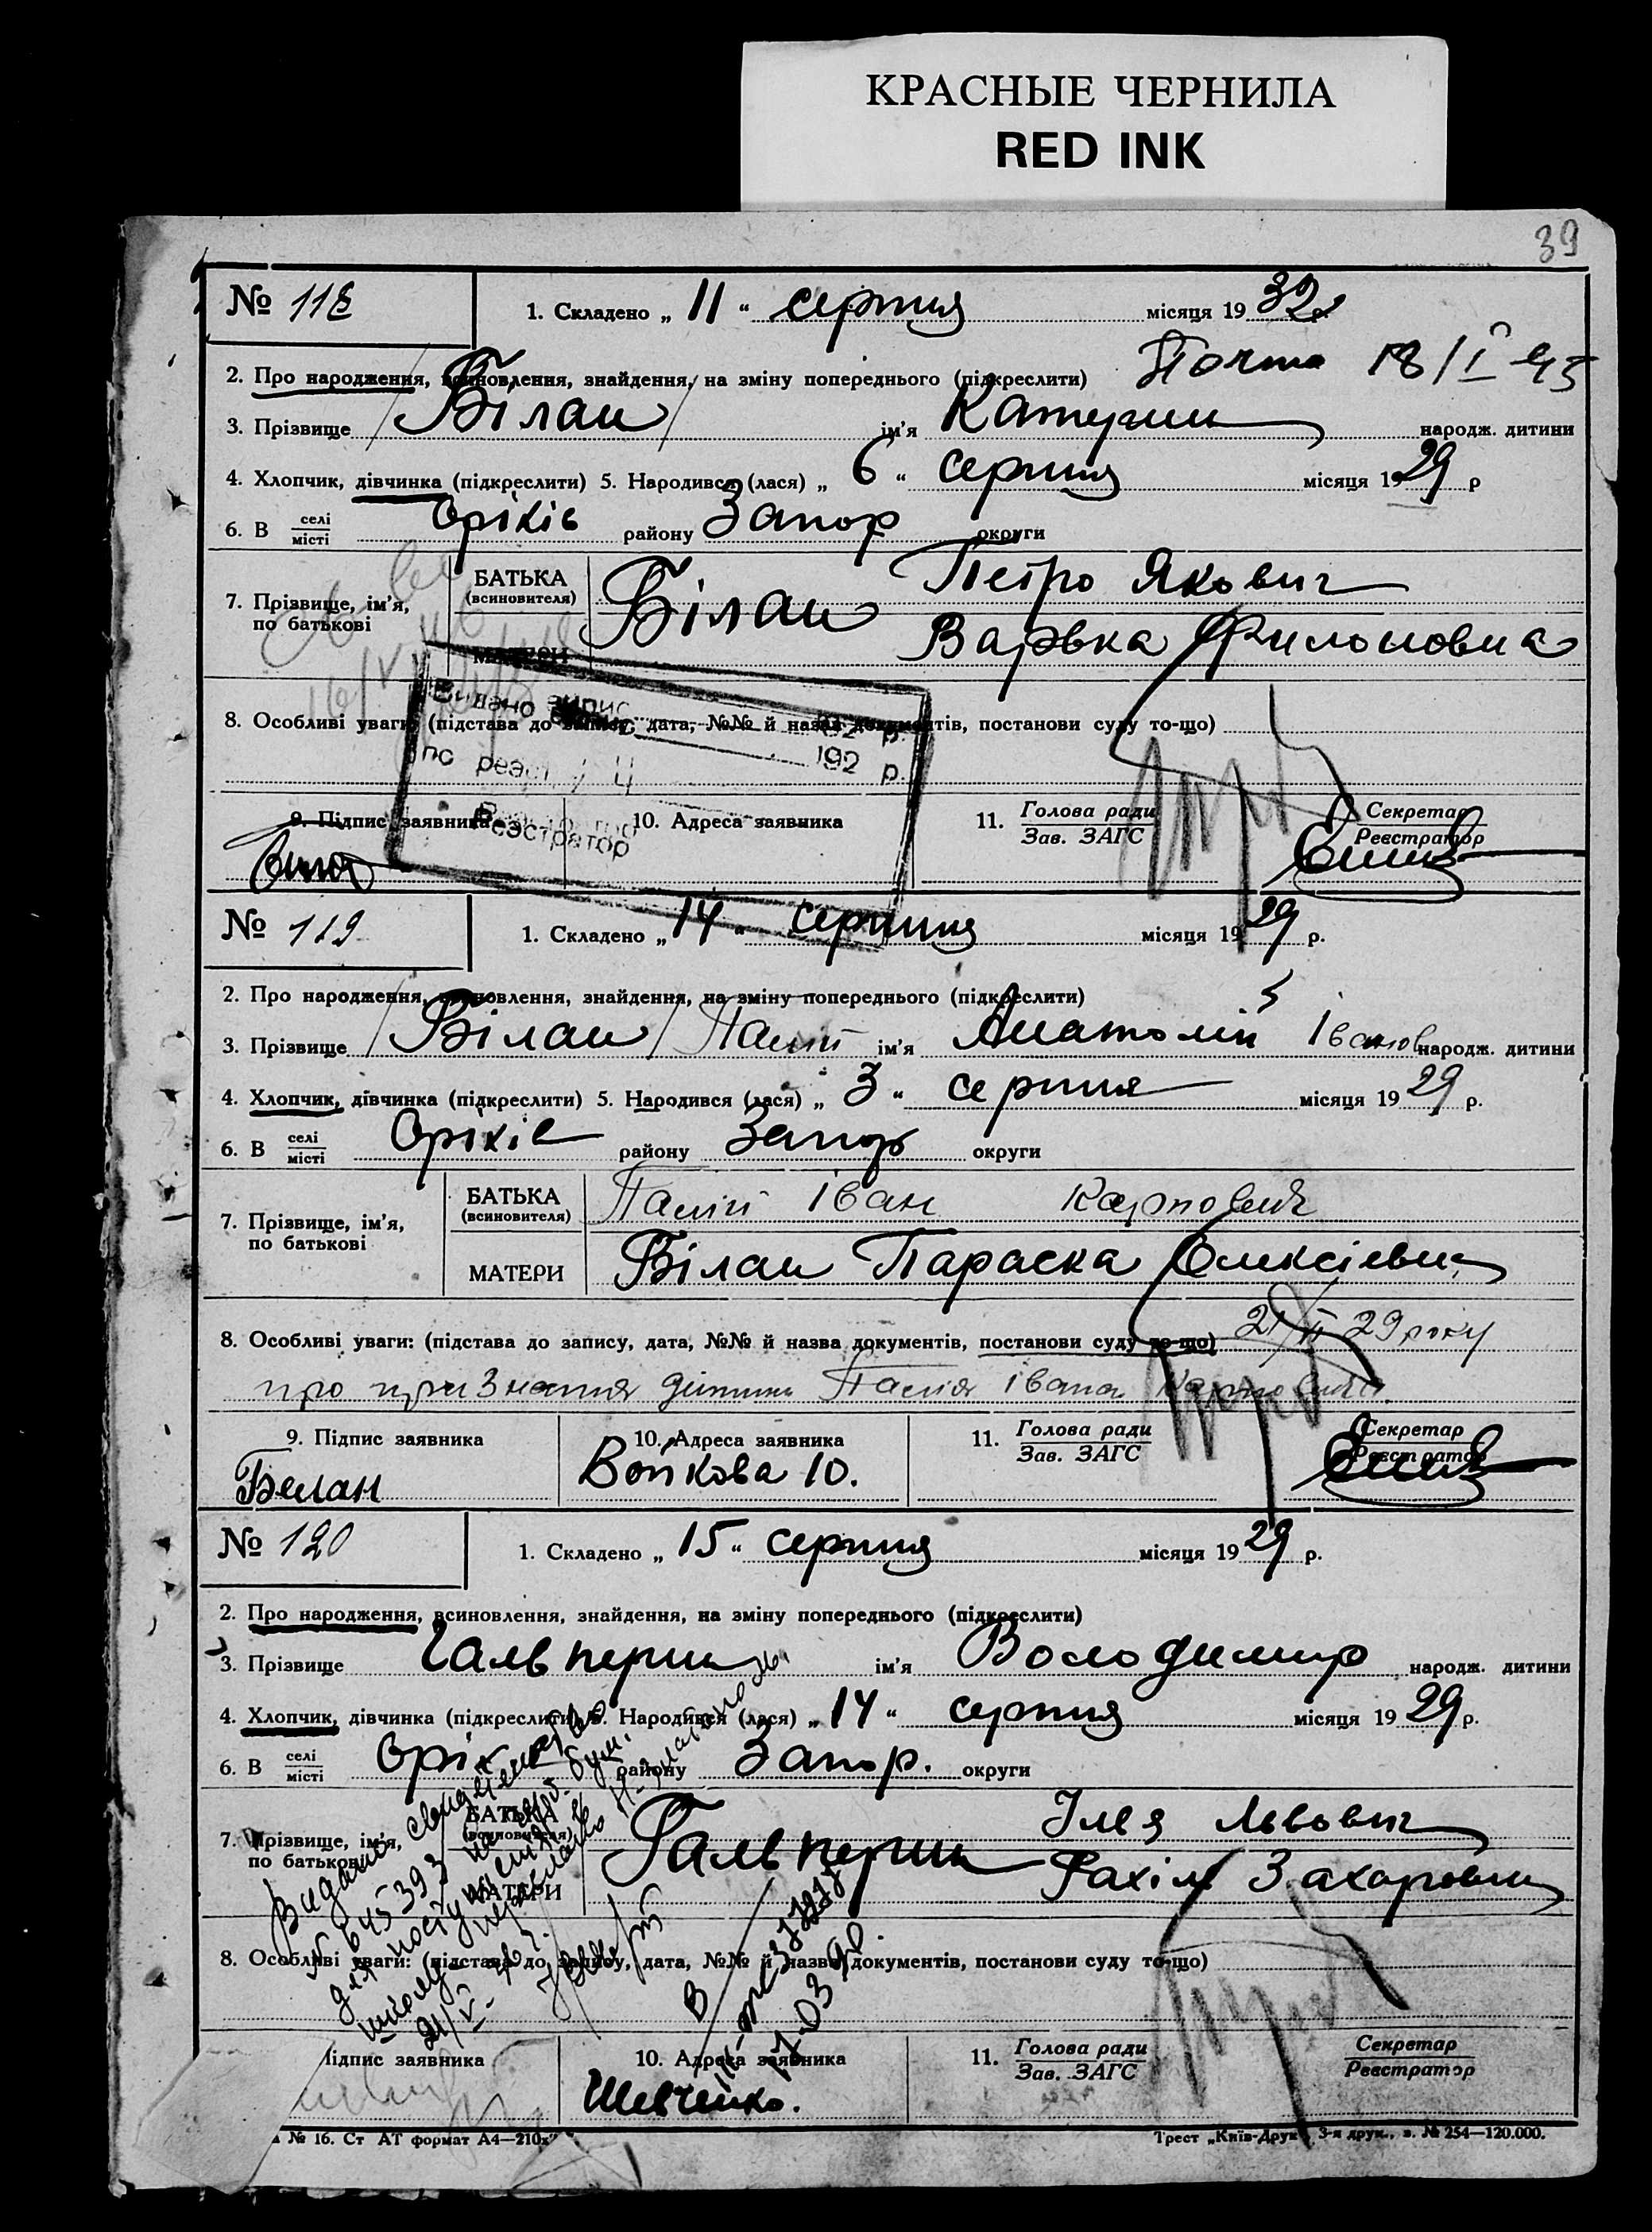 КРАСНЫЕ ЧЕРНИЛА
RED INK
39
№ 118 1. Складено „ 11 “ серпня місяця 19 р.
2. Про народження, всиновлення, знайдення, на зміну попереднього (підкреслити) Почто 18/I 45
3. Прізвище Білан ім’я Катерина народж. дитини
4. Хлопчик, дівчинка (підкреслити) 5. Народився (лася) „ 6 “ серпня місяця 1929 р
6. В селі місті Оріхів району Запор округи
7. Прізвище, ім’я, по батькові БАТЬКА (всиновителя) Білан Петро Якович
МАТЕРИ Варвка Филоновна
8. Особливі уваги: (підстава до запису, дата, №№ й назва документів, постанови суду то-що)
Видано випис 192 р.
по реэст 192 р.
Реэстратор
9. Підпис заявника 10. Адреса заявника 11. Голова ради Зав. ЗАГС Секретар Реєстратор
№ 119 1. Складено „ 14 “ серпня місяця 1929 р.
2. Про народження, всиновлення, знайдення, на зміну попереднього (підкреслити)
3. Прізвище Білан Палій ім’я Анатолій Іванов народж. дитини
4. Хлопчик, дівчинка (підкреслити) 5. Народився (лася) „ 3 “ серпня місяця 1929 р.
6. В селі місті Оріхів району Запор округи
7. Прізвище, ім’я, по батькові БАТЬКА (всиновителя) Палій Іван Карпович
МАТЕРИ Білан Параска Олексіевна
8. Особливі уваги: (підстава до запису, дата, №№ й назва документів, постанови суду то-що) 29 року
про признання дитини Палія Івана Карповича
9. Підпис заявника 10. Адреса заявника 11. Голова ради Зав. ЗАГС Секретар Реєстратор
Белан Войкова 10.
№ 120 1. Складено „ 15 “ серпня місяця 1929 р.
2. Про народження, всиновлення, знайдення, на зміну попереднього (підкреслити)
3. Прізвище Гальперин ім’я Володимир народж. дитини
4. Хлопчик, дівчинка (підкреслити) 5. Народився (лася) „ 14 “ серпня місяця 1929 р.
6. В селі місті Оріхів району Запор. округи
7. Прізвище, ім’я, по батькові БАТЬКА (всиновителя) Гальперин Ілля Львович
МАТЕРИ Рахіль Захаровна
Видано свидетельство
№ 645393
для поступления
школу
21/V
8. Особливі уваги: (підстава до запису, дата, №№ й назва документів, постанови суду то-що)
підпис заявника 10. Адреса заявника 11. Голова ради Зав. ЗАГС Секретар Реєстратор
Шевченко.
№ 16. Ст АТ формат А4—210х Трест „Київ-Друк“, 3-я друк., з. № 254—120.000.